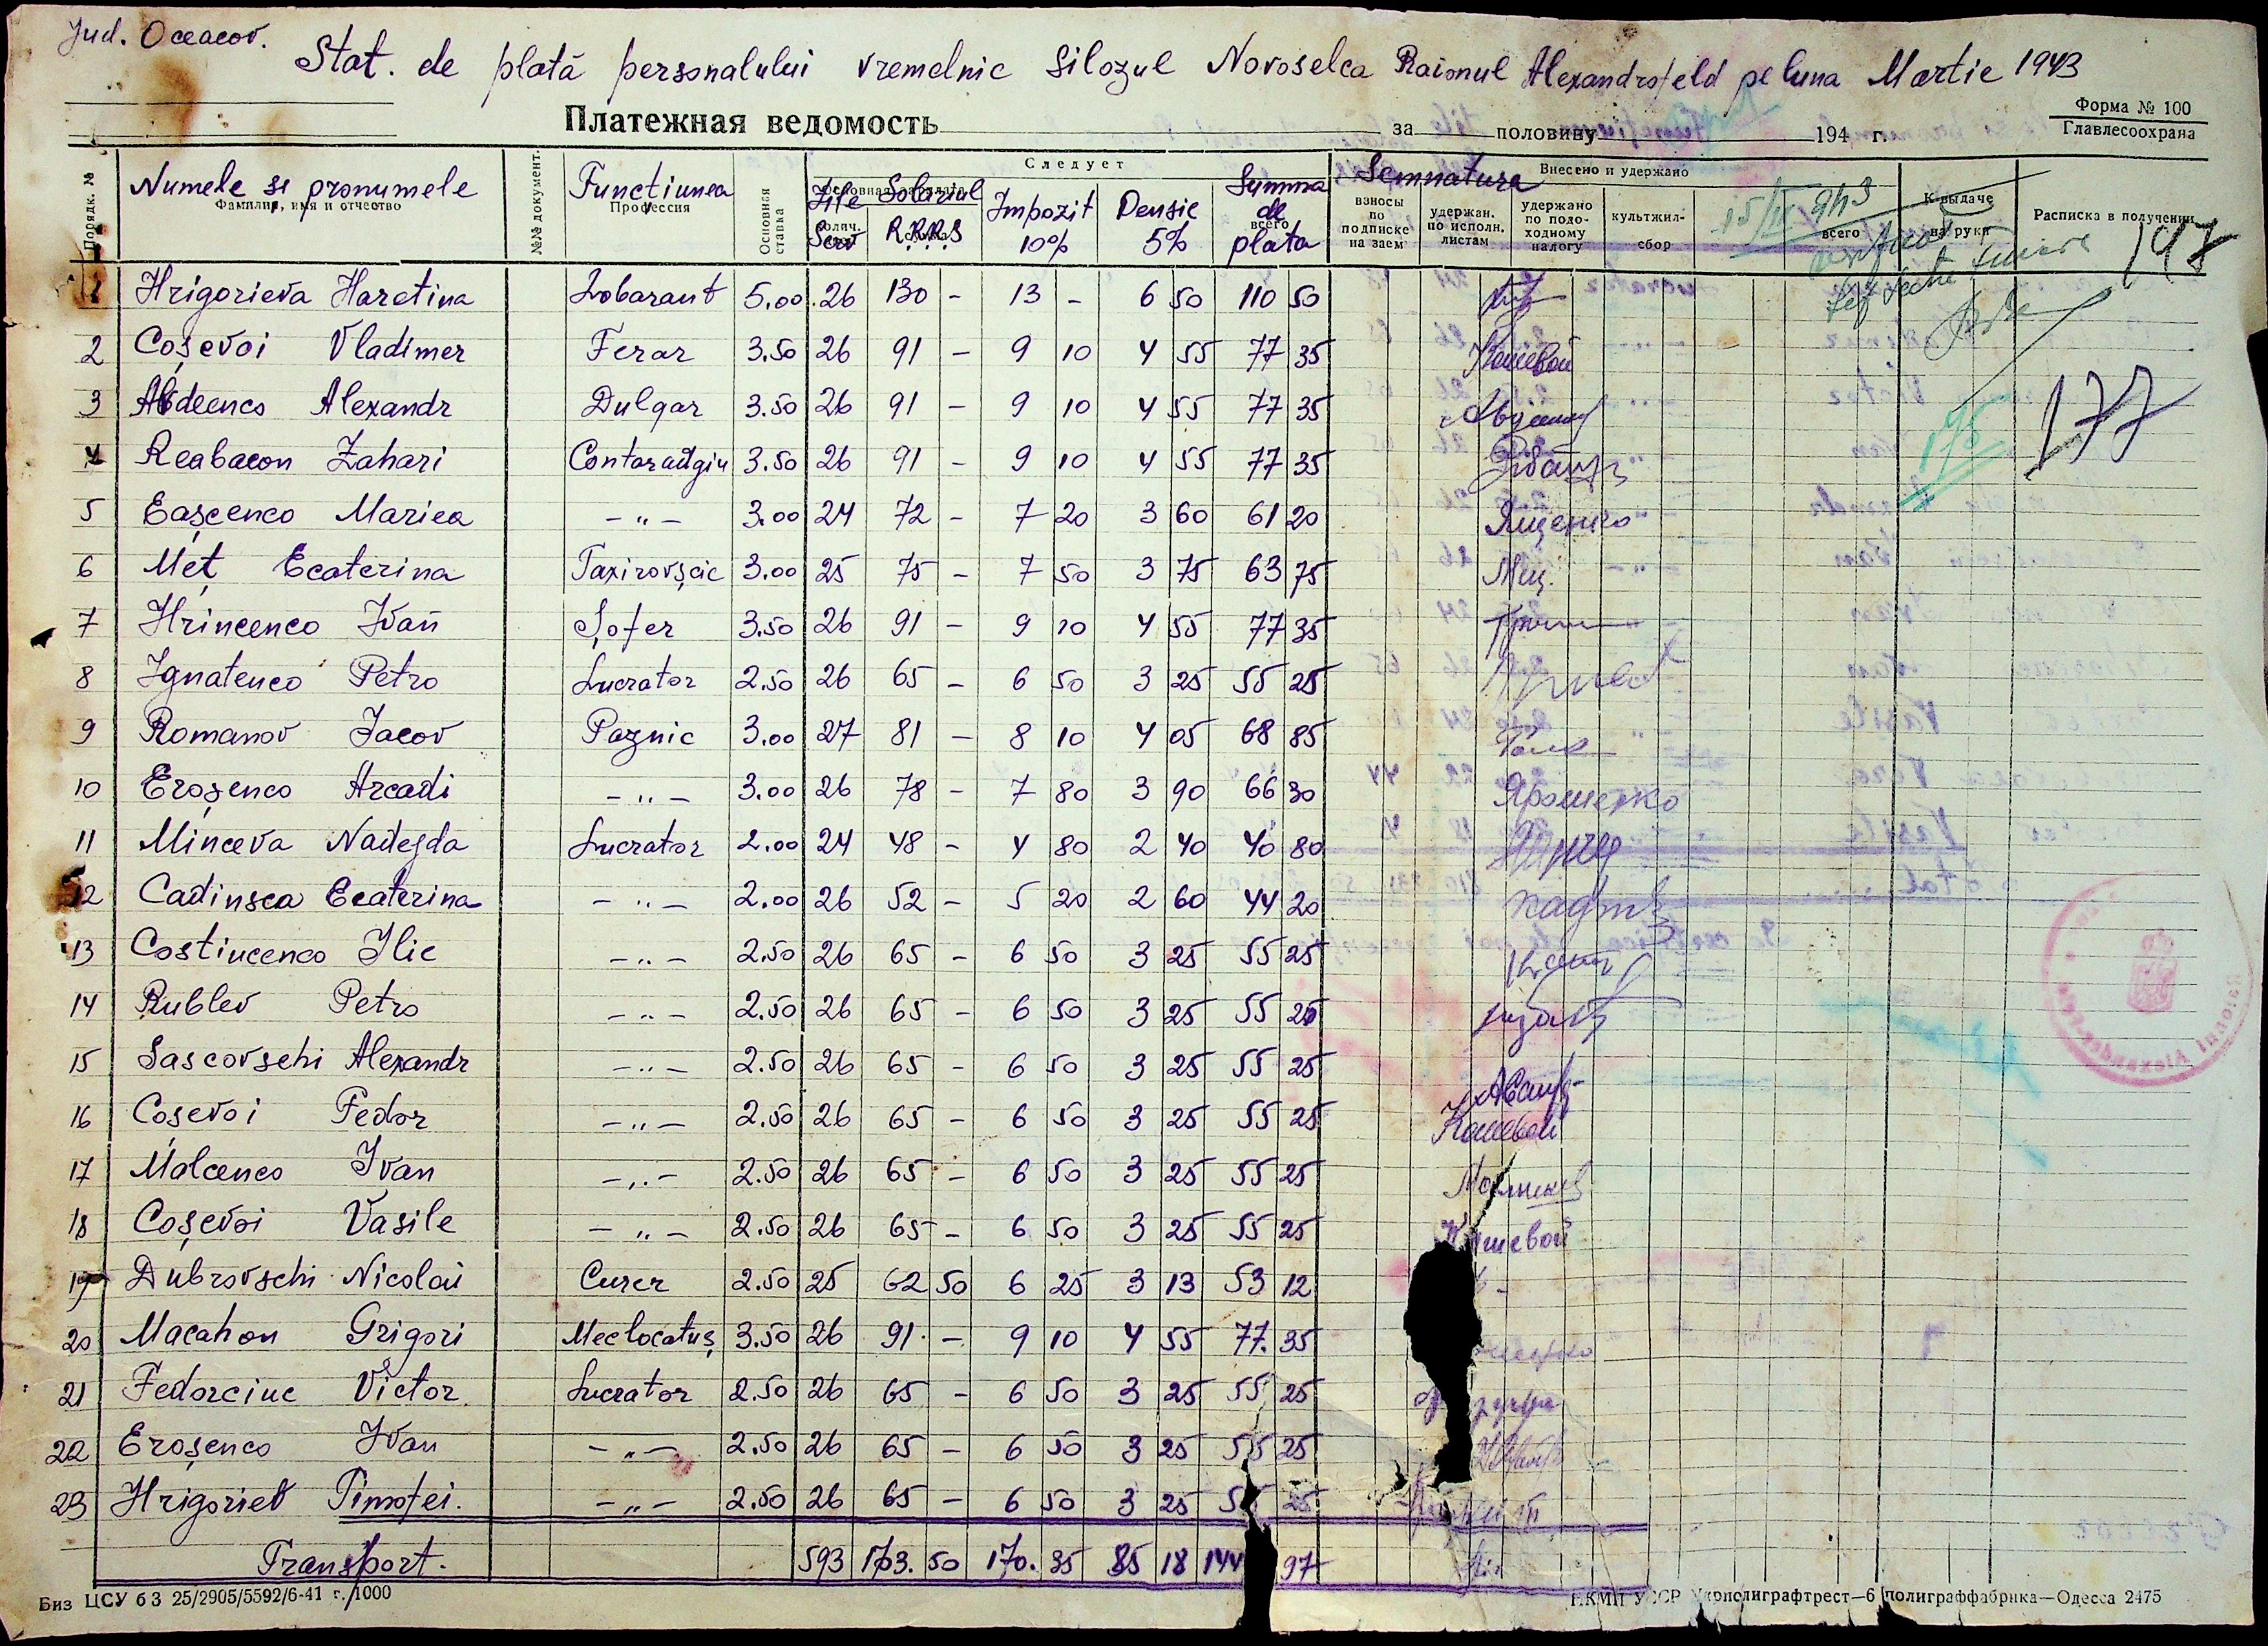 Jud. Oceacov.
Stat. de plată personalului vremelnic Silozul Novoselca Raionul Alexandrofeld pe luna Martie 1943
Форма № 100
Главлесоохрана
Платежная ведомость за половину 194 г.
Порядк. №
Numele și pronumele
Фамилия, имя и отчество
№№ документ.
Funcțiunea
Профессия
Основная ставка
Следует
Zile Serv
Solariul
R.R.R.S
Impozit 10%
Pensie 5%
Summa de plata
всего
Semnatura
Внесено и удержано
взносы по подписке на заем
удержан. по исполн. листам
удержано по подоходному налогу
культжил-сбор
всего
К выдаче на руки
Расписка в получении
197
1 Hrigorieva Haretina Lobarant 5.00 26 130 - 13 - 6 50 110 50
2 Coșevoi Vladimer Ferar 3.50 26 91 - 9 10 4 55 77 35 Кошевой
3 Abdeenco Alexandr Dulgar 3.50 26 91 - 9 10 4 55 77 35
177
4 Reabacon Zahari Contoradgiu 3.50 26 91 - 9 10 4 55 77 35
195
5 Eașcenco Mariea -"- 3.00 24 72 - 7 20 3 60 61 20 Ященко
6 Meț Ecaterina Taxirovșcic 3.00 25 75 - 7 50 3 75 63 75 Мец.
7 Hrincenco Ivan Șofer 3.50 26 91 - 9 10 4 55 77 35
8 Ignatenco Petro Lucrator 2.50 26 65 - 6 50 3 25 55 25
9 Romanov Iacov Paznic 3.00 27 81 - 8 10 4 05 68 85
10 Eroșenco Arcadi -"- 3.00 26 78 - 7 80 3 90 66 30 Ярошенко
11 Minceva Nadejda Lucrator 2.00 24 48 - 4 80 2 40 40 80
12 Cadinsca Ecaterina -"- 2.00 26 52 - 5 20 2 60 44 20
13 Costiucenco Ilie -"- 2.50 26 65 - 6 50 3 25 55 25
14 Rublev Petro -"- 2.50 26 65 - 6 50 3 25 55 25
15 Sascovschi Alexandr -"- 2.50 26 65 - 6 50 3 25 55 25
16 Coșevoi Fedor -"- 2.50 26 65 - 6 50 3 25 55 25 Кошевой
17 Malcenco Ivan -"- 2.50 26 65 - 6 50 3 25 55 25
18 Coșevoi Vasile -"- 2.50 26 65 - 6 50 3 25 55 25 Кошевой
19 Dubrovschi Nicolai Curer 2.50 25 62 50 6 25 3 13 53 12
20 Macahon Grigori Meclocatuș 3.50 26 91 - 9 10 4 55 77. 35
21 Fedorciuc Victor Lucrator 2.50 26 65 - 6 50 3 25 55 25
22 Eroșenco Ivan -"- 2.50 26 65 - 6 50 3 25 55 25
23 Hrigoriev Timofei. -"- 2.50 26 65 - 6 50 3 25 55 25
Transport. 593 1703. 50 170. 35 85 18 144 97
Биз ЦСУ б 3 25/2905/5592/6-41 г. 1000
НКМП УССР Укрполиграфтрест—6 полиграффабрика—Одесса 2475